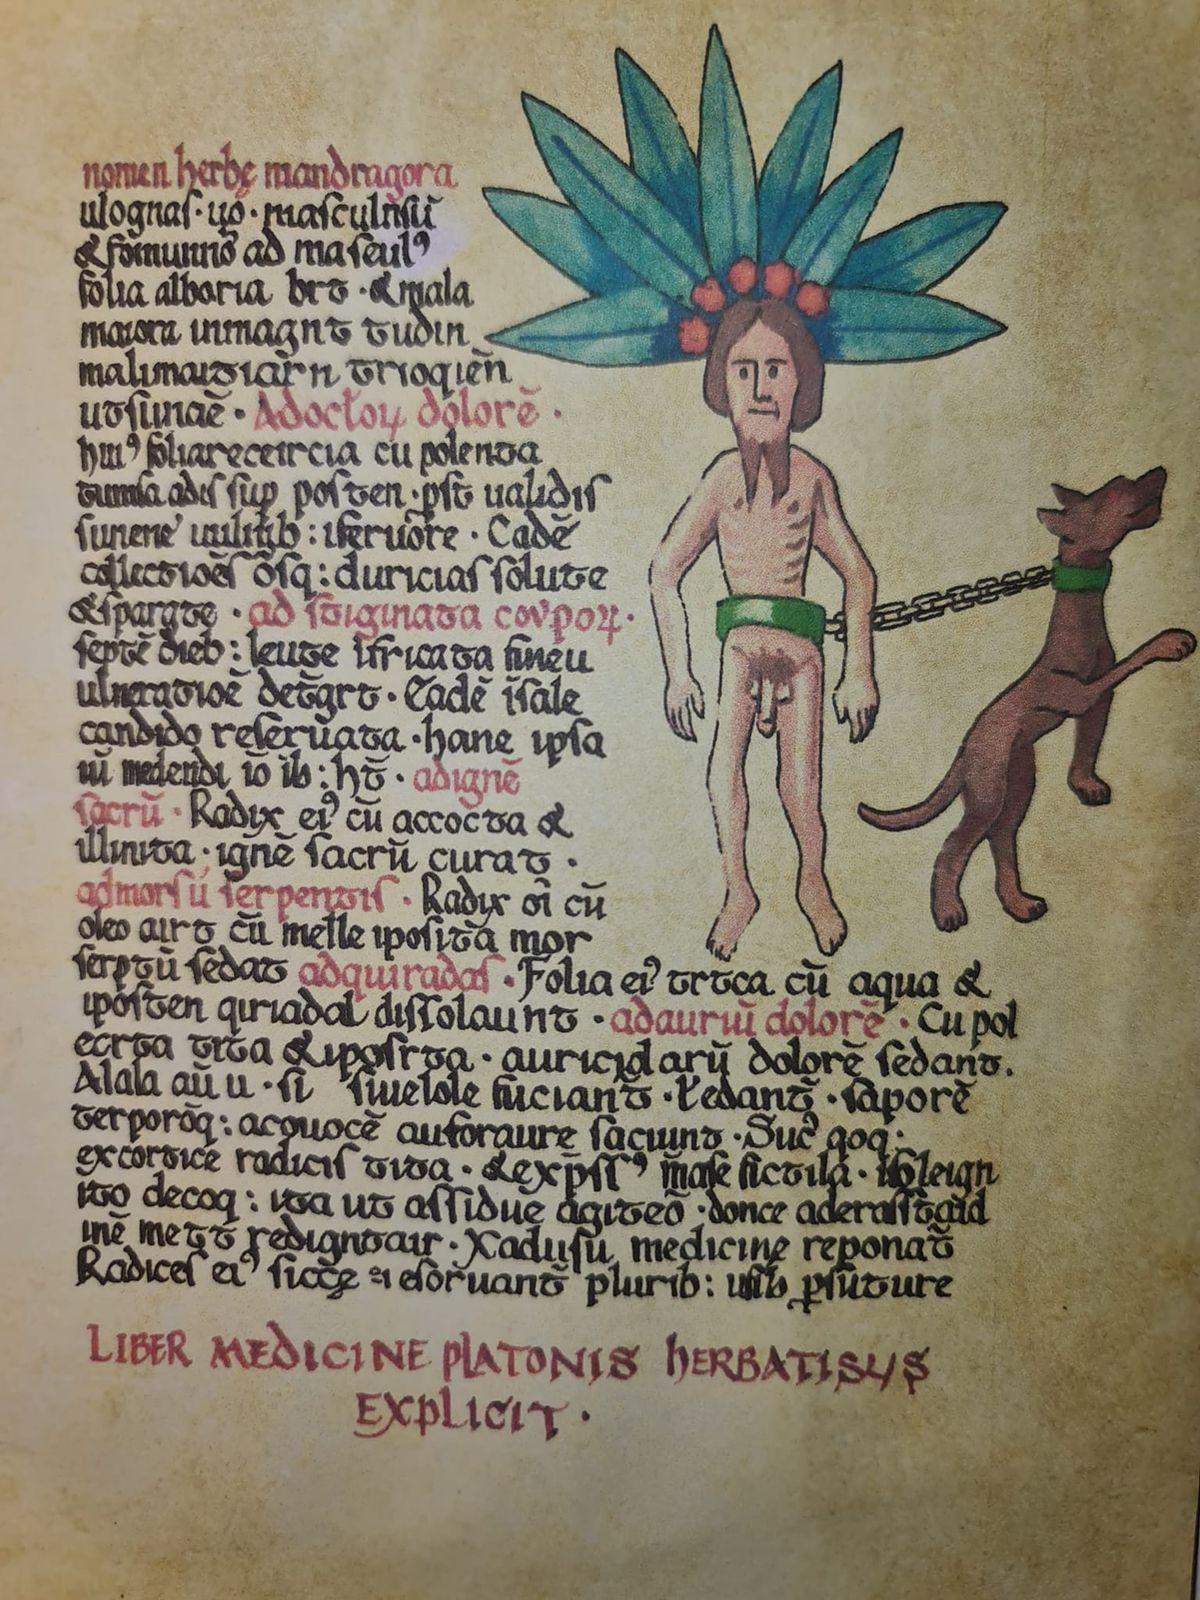 nomen herbę mandragora
ulognas · uo᷒ · masculn̄sū
& fōmunnō ad maseulꝰ
folia alboria brt · & mala
maiora inmagnt tudin
malimaitiār n trioqien̄
utsiinaē · Adoctoꝝ dolorē ·
huiꝰ foliarecetrcia cu polenta
tumsa adis sup posten · pst̄ ualidis
surene uulnib : isferuōre · Cadē
collectioēs ōsq : duricias solute
& spargte · ad stiginata corpoꝝ ·
septē dieb : leute īfricata sineu
ulneratioē det̄grt · Cadē īsale
candido reserūata · hane ipsa
iū medendi īo ib : ht̄ · adignē
sacrū · Radix eiꝰ cū accocta &
illinita · ignē sacrū curat ·
admorsū serpentis · Radix ei cū
oleo airt cū melle ipositā mor
serptū sedat adquiradas · Folia eiꝰ trtca cū aqua &
iposten qiriadal dissolaunt · adauriū dolorē · Cu pol
ecrta trta & iposrta · auricid arū dolorē sedant.
Alala aū u · si siuelole fuciant̄ · Ledant̄ · saporē
terporōq : acquocē auforaure faciunt · Sucꝰ qoq :
excortice radicis tita · & exp̄ssꝰ māse fictila · ibleign
ito decoq : ita ut assidue agiteō · donce aderasstaid
inē mett redigntair · Xadusu medicine reponat̄
Radices eiꝰ sicce esoruant̄ plurib : usib psūture
LIBER MEDICINE PLATONIS HERBATISUS
EXPLICIT ·